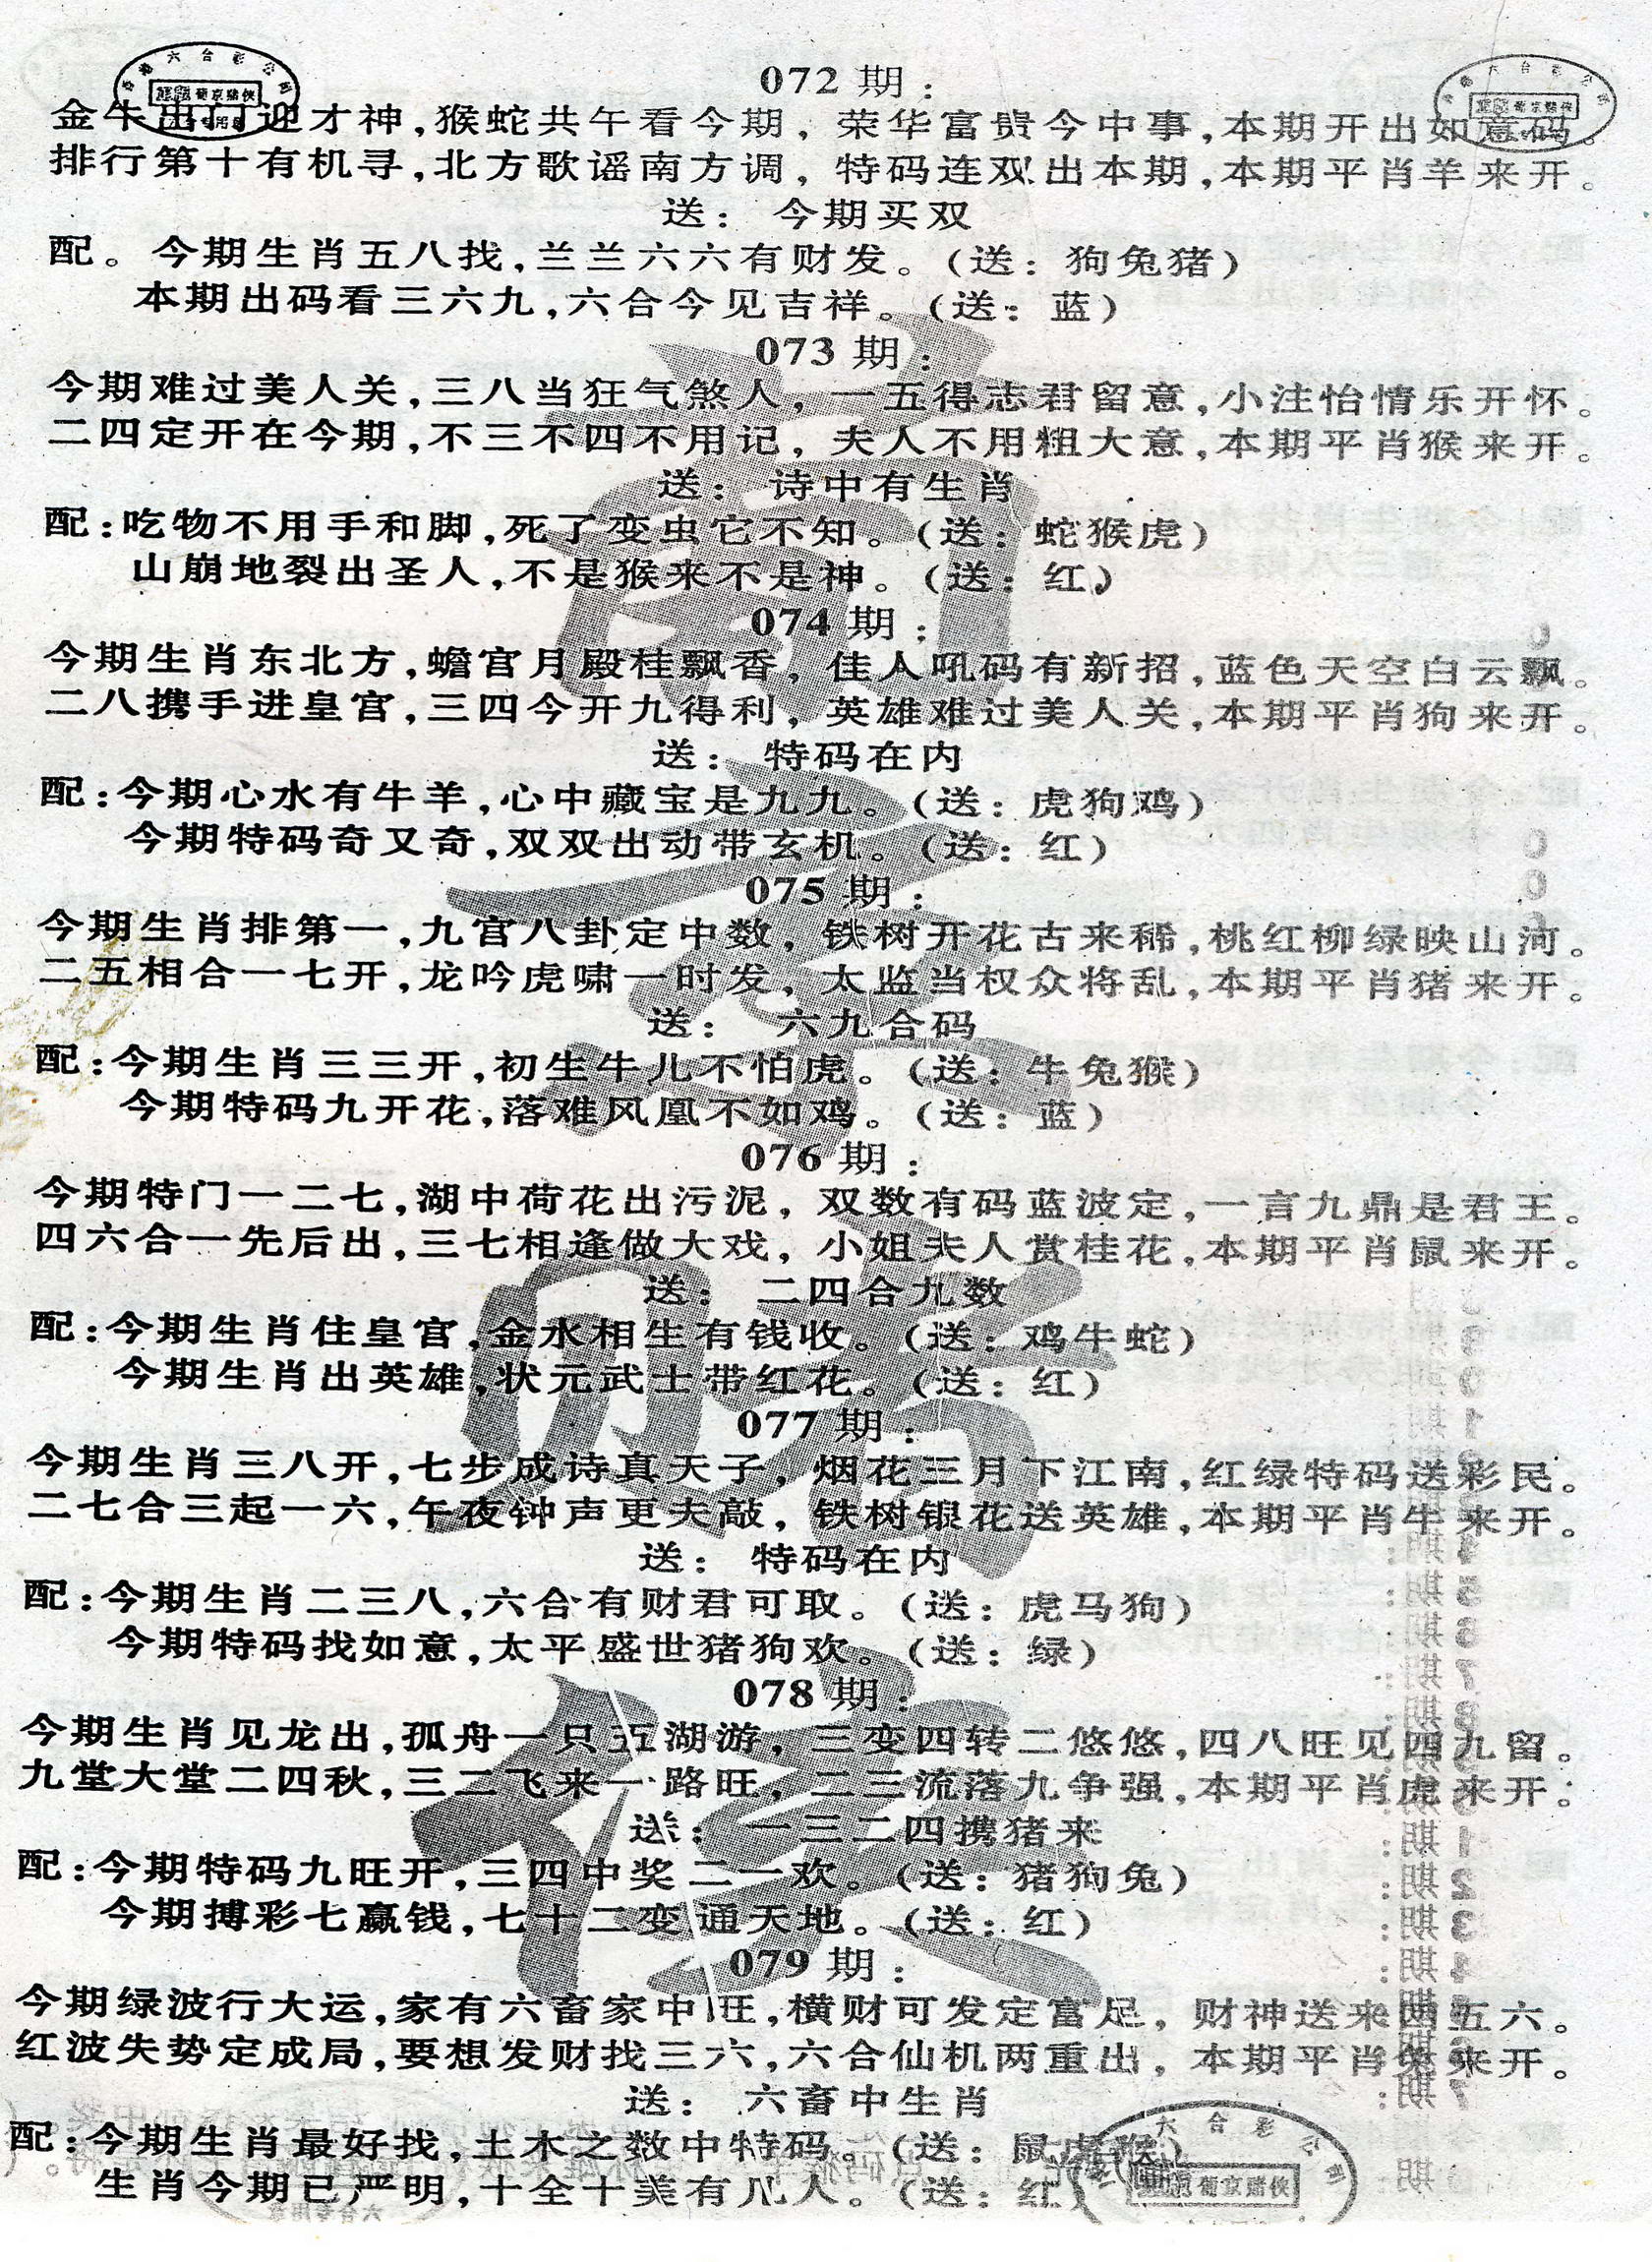 香港六合彩公司
葡京赌侠
六合彩公司
葡京赌侠
072 期：
金牛出门迎才神，猴蛇共午看今期，荣华富贵今中事，本期开出如意码。
排行第十有机寻，北方歌谣南方调，特码连双出本期，本期平肖羊来开。
送： 今期买双
配。今期生肖五八找，兰兰六六有财发。（送：狗兔猪）
本期出码看三六九，六合今见吉祥。（送：蓝）
073 期：
今期难过美人关，三八当狂气煞人，一五得志君留意，小注怡情乐开怀。
二四定开在今期，不三不四不用记，夫人不用粗大意，本期平肖猴来开。
送： 诗中有生肖
配：吃物不用手和脚，死了变虫它不知。（送：蛇猴虎）
山崩地裂出圣人，不是猴来不是神。（送：红）
074 期：
今期生肖东北方，蟾宫月殿桂飘香，佳人吼码有新招，蓝色天空白云飘。
二八携手进皇宫，三四今开九得利，英雄难过美人关，本期平肖狗来开。
送： 特码在内
配：今期心水有牛羊，心中藏宝是九九。（送：虎狗鸡）
今期特码奇又奇，双双出动带玄机。（送：红）
075 期：
今期生肖排第一，九宫八卦定中数，铁树开花古来稀，桃红柳绿映山河。
二五相合一七开，龙吟虎啸一时发，太监当权众将乱，本期平肖猪来开。
送： 六九合码
配：今期生肖三三开，初生牛儿不怕虎。（送：牛兔猴）
今期特码九开花，落难风凰不如鸡。（送：蓝）
076 期：
今期特门一二七，湖中荷花出污泥，双数有码蓝波定，一言九鼎是君王。
四六合一先后出，三七相逢做大戏，小姐夫人赏桂花，本期平肖鼠来开。
送： 二四合九数
配：今期生肖住皇宫，金水相生有钱收。（送：鸡牛蛇）
今期生肖出英雄，状元武士带红花。（送：红）
077 期：
今期生肖三八开，七步成诗真天子，烟花三月下江南，红绿特码送彩民。
二七合三起一六，午夜钟声更夫敲，铁树银花送英雄，本期平肖牛来开。
送： 特码在内
配：今期生肖二三八，六合有财君可取。（送：虎马狗）
今期特码找如意，太平盛世猪狗欢。（送：绿）
078 期：
今期生肖见龙出，孤舟一只五湖游，三变四转二悠悠，四八旺见四九留。
九堂大堂二四秋，三二飞来一路旺，二三流落九争强，本期平肖虎来开：
送： 一三二四携猪来
配：今期特码九旺开，三四中奖二一欢。（送：猪狗兔）
今期搏彩七赢钱，七十二变通天地。（送：红）
079 期：
今期绿波行大运，家有六畜家中旺，横财可发定富足，财神送来四五六。
红波失势定成局，要想发财找三六，六合仙机两重出，本期平肖来开。
送： 六畜中生肖
配：今期生肖最好找，土木之数中特码。（送：鼠虎猴）
生肖今期已严明，十全十美有几人。（送：红）
六合彩公司
葡京赌侠